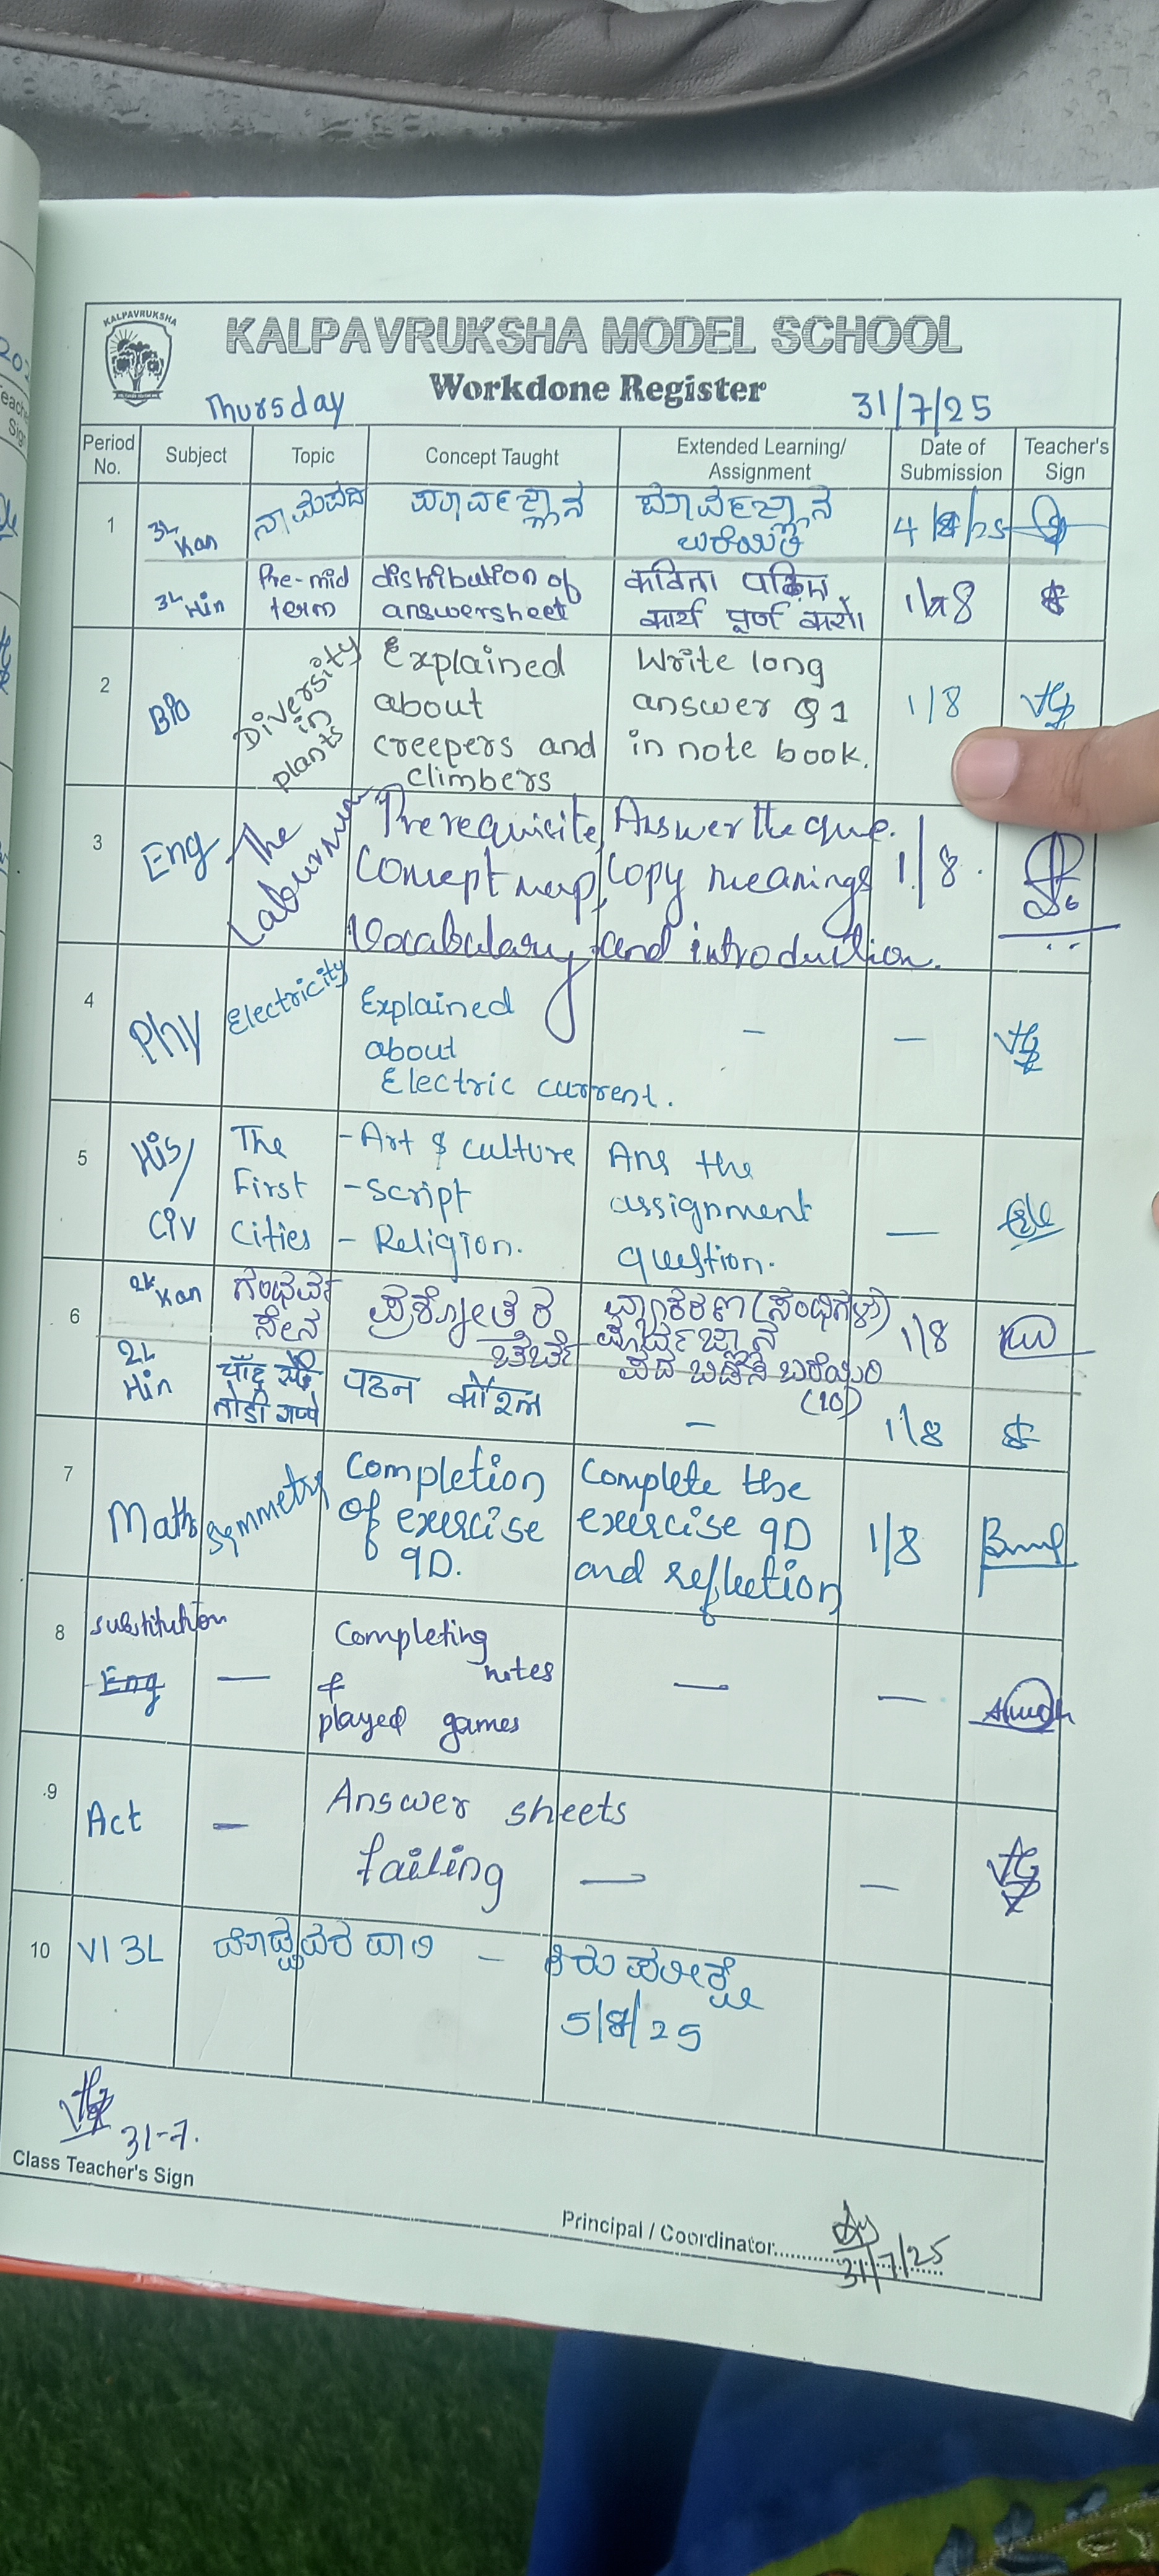 KALPAVRUKSHA
KALPAVRUKSHA MODEL SCHOOL
Workdone Register
Thursday
31/7/25
Period No.
Subject
Topic
Concept Taught
Extended Learning/
Assignment
Date of
Submission
Teacher's
Sign
1
3L
Kan
ನಾಮಪದ
ಪೂರ್ವಜ್ಞಾನ
ಪೂರ್ವಜ್ಞಾನ
ಬರೆಯಿರಿ
4/8/25
3L Hin
Pre-mid
term
distribution of
answersheet
कविता
कार्य पूर्ण करो।
1/8
2
Bio
Diversity
in
plants
Explained
about
creepers and
climbers
Write long
answer Q1
in note book.
1/8
3
Eng
The
Laburnum
Prerequicite,
Concept map,
Vocabulary and introduction.
Answer the que.
Copy meanings
1/8.
4
Phy
Electricity
Explained
about
Electric current.
—
—
5
His/
Civ
The
First
Cities
- Art & culture
- Script
- Religion.
Ans the
assignment
question.
—
6
2L
Kan
ಗಂಧರ್ವ
ಸೇನ
ಪ್ರಶ್ನೋತ್ತರ
ಚರ್ಚೆ
ವ್ಯಾಕರಣ (ಸಂಧಿಗಳು)
ಪೂರ್ವಜ್ಞಾನ
ಪದ ಬರೆಯಿರಿ
(10)
1/8
2L
Hin
चाँद से
थोड़ी गप्पे
पठन कौशल
—
1/8
7
Maths
Symmetry
Completion
of exercise
9D.
Complete the
exercise 9D
and reflection
1/8
8
substitution
Eng
—
Completing
notes
&
played games
—
—
9
Act
—
Answer sheets
failing
—
—
10
VI 3L
—
ಕಿರು ಪರೀಕ್ಷೆ
5/8/25
31-7.
Class Teacher's Sign
Principal / Coordinator
31/7/25